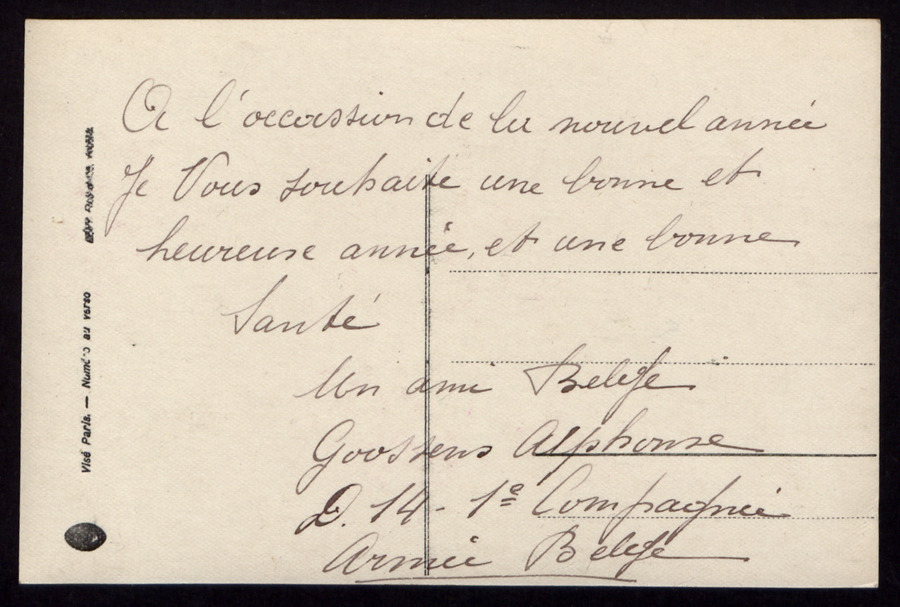 A l'occassion de la nouvel année
Je Vous souhaite une bonne et
heureuse année, et une bonne
Santé
Un ami Belge
Goossens Alphonse
D. 14 - 1e Compagnie
Armée Belge
Visé Paris. — Numéro au verso